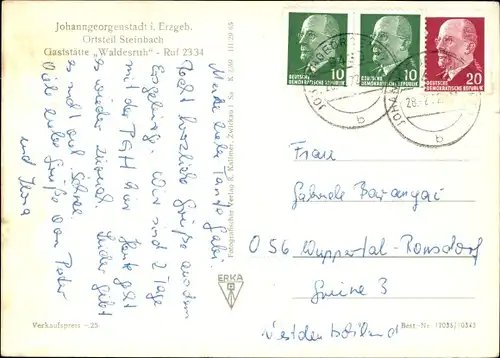 Johanngeorgenstadt i. Erzgeb.
Ortsteil Steinbach
Gaststätte „Waldesruh" - Ruf 2334
Meine liebe Tante Gabi
Recht herzliche Grüße aus dem
Erzgebirge. Wir sind 2 Tage
mit der PGH hier. Heute geht
es wieder zurück. Leider gibt
es nicht viel Schnee.
Viele liebe Grüße von Peter
und Ilona
Verkaufspreis -.25
Fotografischer Verlag R. Kallmer, Zwickau i. Sa.
III/29/65
ERKA
10
DEUTSCHE
DEMOKRATISCHE REPUBLIK
10
DEUTSCHE
DEMOKRATISCHE REPUBLIK
20
DEUTSCHE
DEMOKRATISCHE REPUBLIK
b
b
Frau
Gabriele Barangai
O 56 Wuppertal-Ronsdorf
3
Westdeutschland
Best.-Nr. 12035/0343